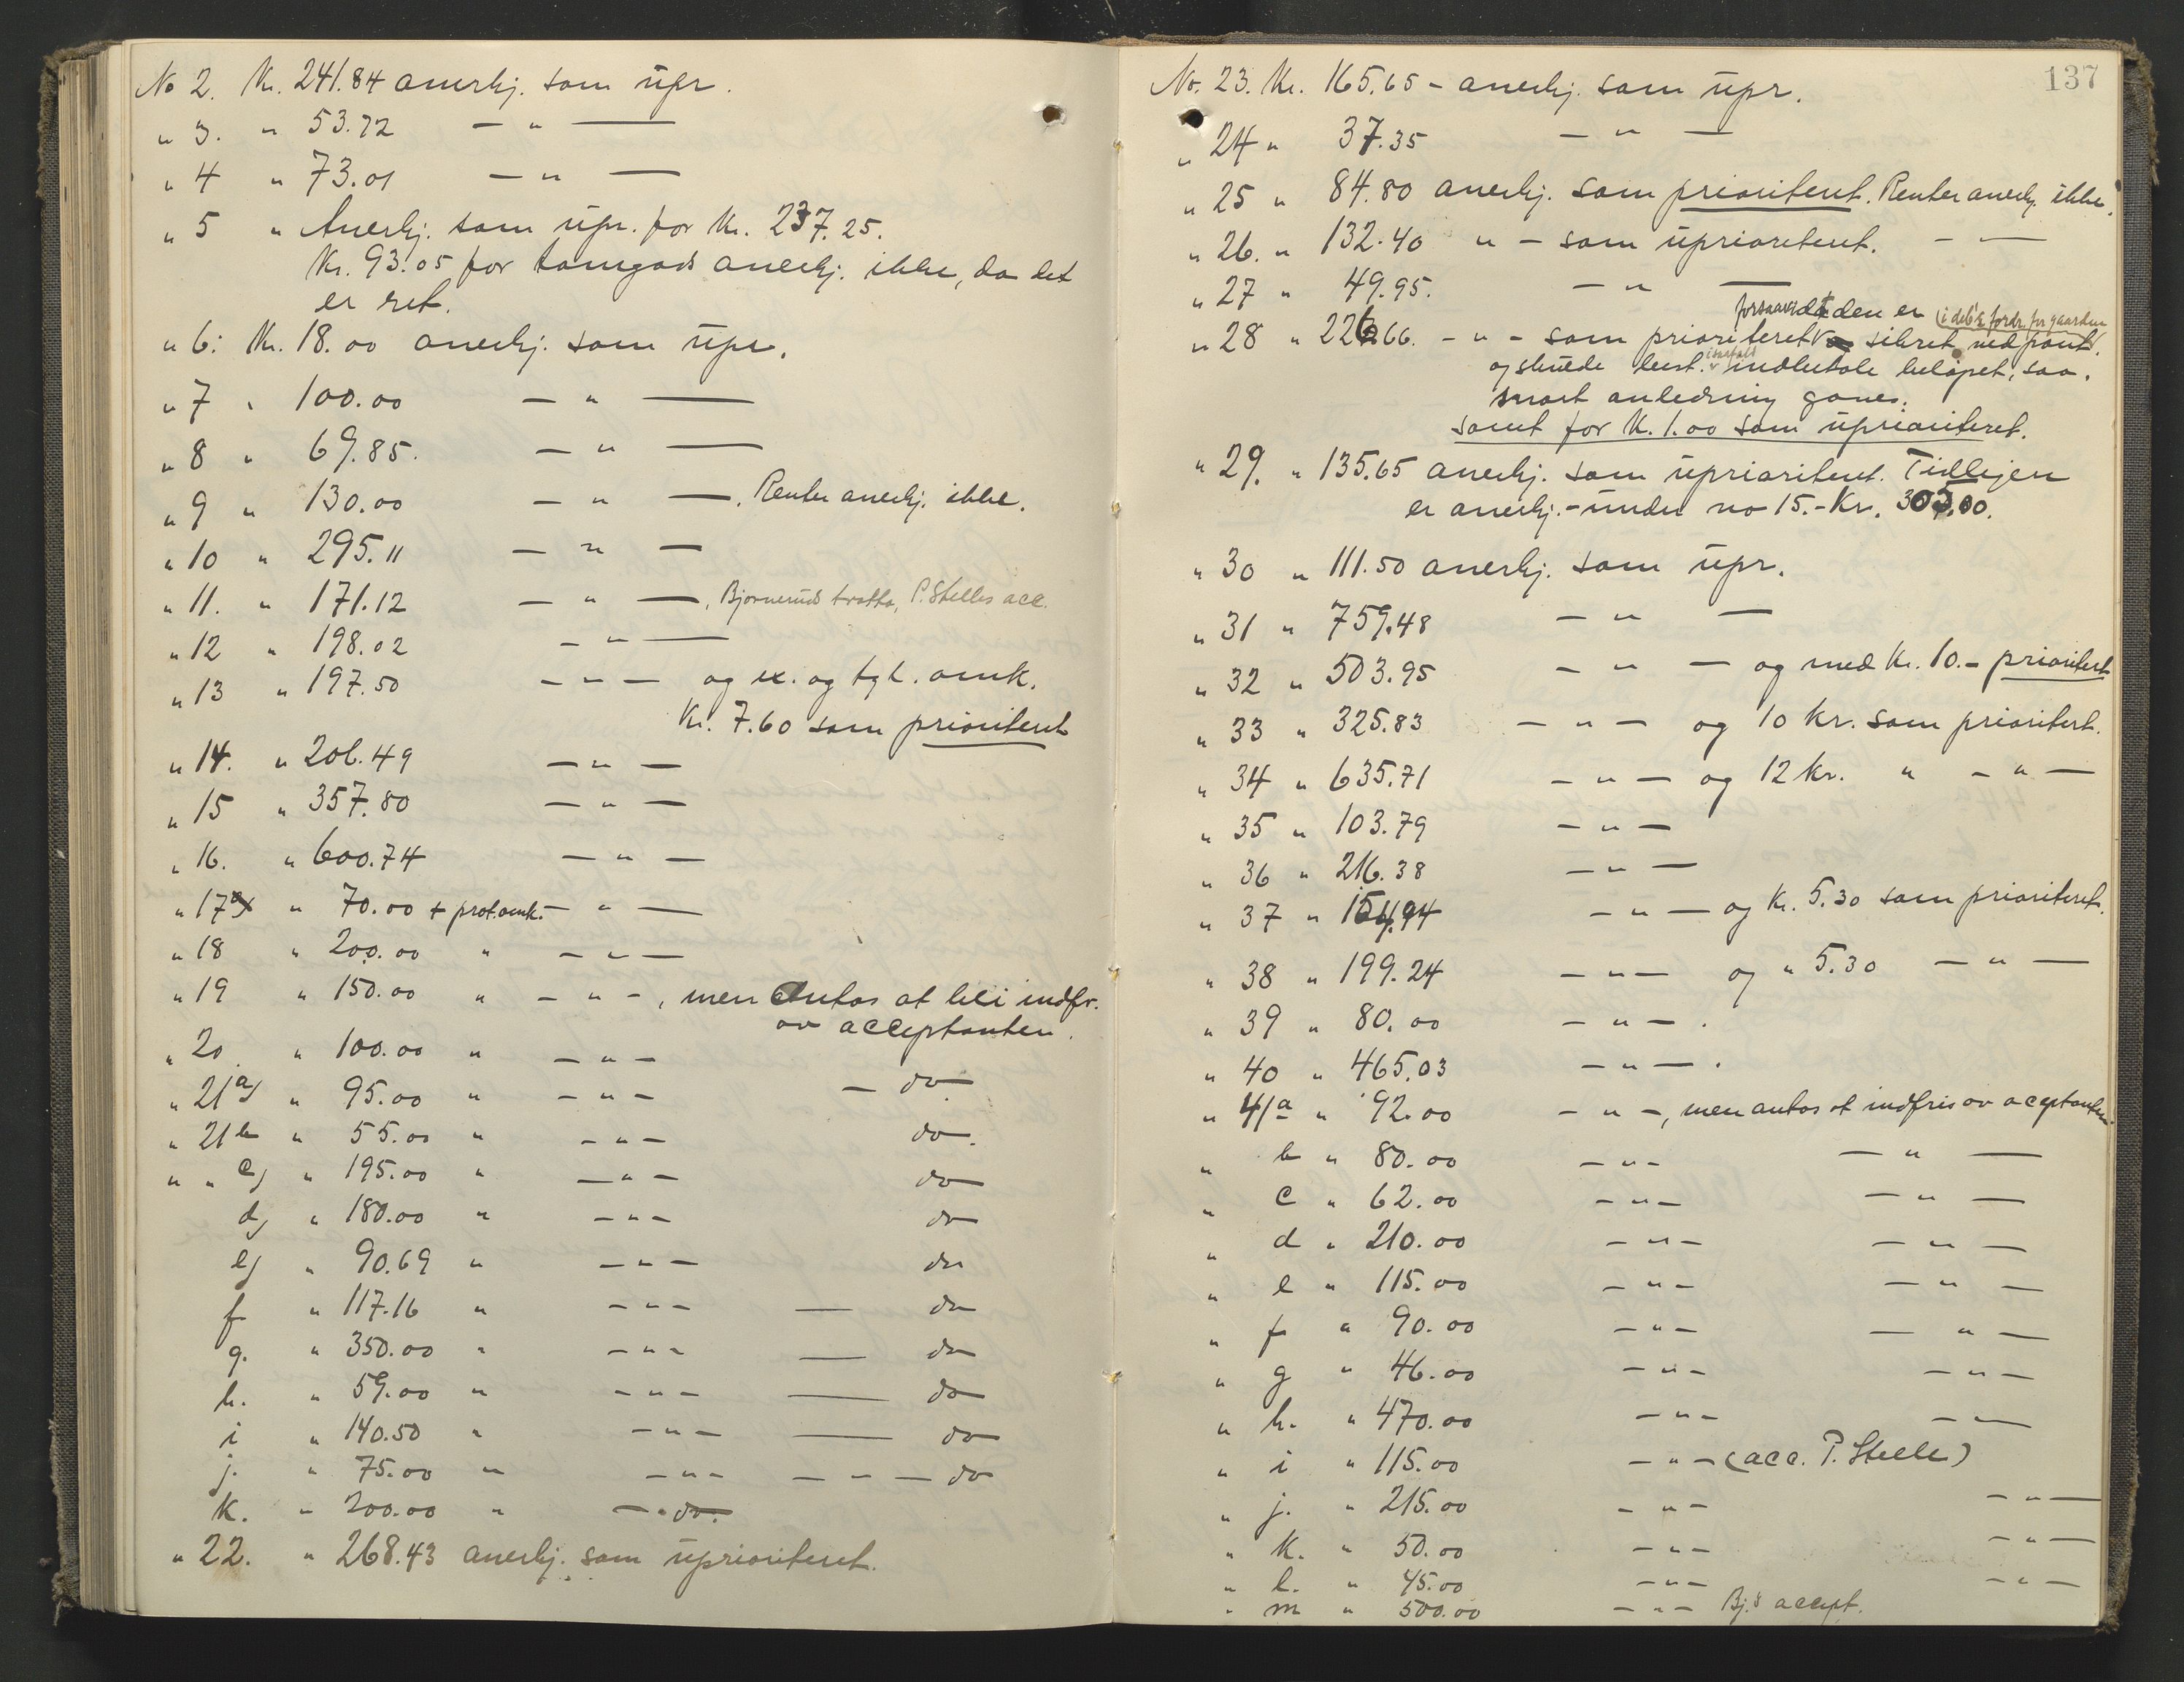 No 2. Kr. 241.84 anerkj. som upr.
" 3. " 53.72 — " —
" 4 " 73.01 — " —
" 5 " Anerkj. som upr. for Kr. 237.25.
Kr. 93.05 for tomgods anerkj. ikke, da det
er ret.
" 6: Kr. 18.00 anerkj. som upr.
" 7 " 100.00 — " —
" 8 " 69.85. — " —
" 9 " 130.00 — " —. Renter anerkj. ikke.
" 10 " 295.11 — " —
" 11. " 171.12 — " —, Bjørneruds tratta, P. Stelles acc.
" 12 " 198.02 — " —
" 13 " 197.50 — " — og ex. og tgl. omk.
Kr. 7.60 som prioriteret
" 14. " 206.49 — " —
" 15 " 357.80 — " —
" 16. " 600.74 — " —
" 17 " 70.00 + prot.omk. — " —
" 18 " 200.00 " — " —
" 19 " 150.00 " — " —, men antas at bli indfr.
av acceptanten.
" 20 " 100.00 " — " —
" 21a) " 95.00 " — " — — do —
" 21b " 55.00 " — " — do.
" " c) " 195.00 " — " — do
d) " 180.00 " — " — do
e) " 90.69 " — " — do
f " 117.16 " — " — — do
g. " 350.00 " — " — — do
h. " 59.00 " — " — — do
i " 140.50 " — " — — do
j. " 75.00 " — " — — " — do
k. " 200.00 " — " do.
" 22. " 268.43 anerkj. som uprioriteret.
137
No. 23. Kr. 165.65 - anerkj. som upr.
" 24 " 37.35 — " —
" 25 " 84.80 anerkj. som prioriteret. Renter anerkj. ikke.
" 26. " 132.40 " - som uprioriteret. — —
" 27 " 49.95. — " —
forsaavidt den er (i deb's fordr. for gaarden)
" 28 " 226.66. - " - som prioriteret sikret ved pant.
og skulde best. isaafald indbetale beløpet, saa
snart anledning gaves.
samt for K. 1.00 som uprioriteret.
" 29. " 135.65 anerkj. som uprioriteret. Tidligere
er anerkj. - under no 15. - Kr. 305.00.
" 30 " 111.50 anerkj. som upr.
" 31 " 759.48 — " —
" 32 " 503.95 — " — og med Kr. 10.- prioritert
" 33 " 325.83 — " — og 10 kr. som prioritert.
" 34 " 635.71 — " — og 12 kr. " — " —
" 35 " 103.79 — " —
" 36 " 216.38 — " —
" 37 " 154.94 — " — og Kr. 5.30 som prioriteret.
" 38 " 199.24 — " — og " 5.30 — " —
" 39 " 80.00 — " — .
" 40 " 465.03 — " — .
" 41a " 92.00 — " —, men antas at indfris av acceptanten.
" b " 80.00 — " — — " —
" c " 62.00 — " — — " —
" d " 210.00 — " — — " —
" e " 115.00 — " — — " —
" f " 90.00 — " — — " —
" g " 46.00 — " — — " —
" h. " 470.00 — " — — " —
" i " 115.00 — " — (acc. P. Stelle)
" j. " 215.00 — " — — " —
" k. " 50.00 — " — — " —
" l. " 45.00 — " — — " —
" m " 500.00 — " — Bj.s accept.